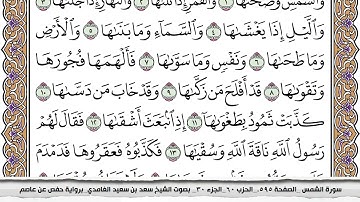 وَٱلشَّمۡسِ وَضُحَىٰهَا ١ وَٱلۡقَمَرِ إِذَا تَلَىٰهَا ٢ وَٱلنَّهَارِ إِذَا جَلَّىٰهَا ٣
وَٱلَّيۡلِ إِذَا يَغۡشَىٰهَا ٤ وَٱلسَّمَآءِ وَمَا بَنَىٰهَا ٥ وَٱلۡأَرۡضِ
وَمَا طَحَىٰهَا ٦ وَنَفۡسٖ وَمَا سَوَّىٰهَا ٧ فَأَلۡهَمَهَا فُجُورَهَا
وَتَقۡوَىٰهَا ٨ قَدۡ أَفۡلَحَ مَن زَكَّىٰهَا ٩ وَقَدۡ خَابَ مَن دَسَّىٰهَا ١٠
كَذَّبَتۡ ثَمُودُ بِطَغۡوَىٰهَآ ١١ إِذِ ٱنۢبَعَثَ أَشۡقَىٰهَا ١٢ فَقَالَ لَهُمۡ
رَسُولُ ٱللَّهِ نَاقَةَ ٱللَّهِ وَسُقۡيَٰهَا ١٣ فَكَذَّبُوهُ فَعَقَرُوهَا فَدَمۡدَمَ
سورة الشمس _ الصفحة ٥٩٥_ الحزب ٦٠_ الجزء ٣٠_ بصوت الشيخ سعد بن سعيد الغامدي_ برواية حفص عن عاصم